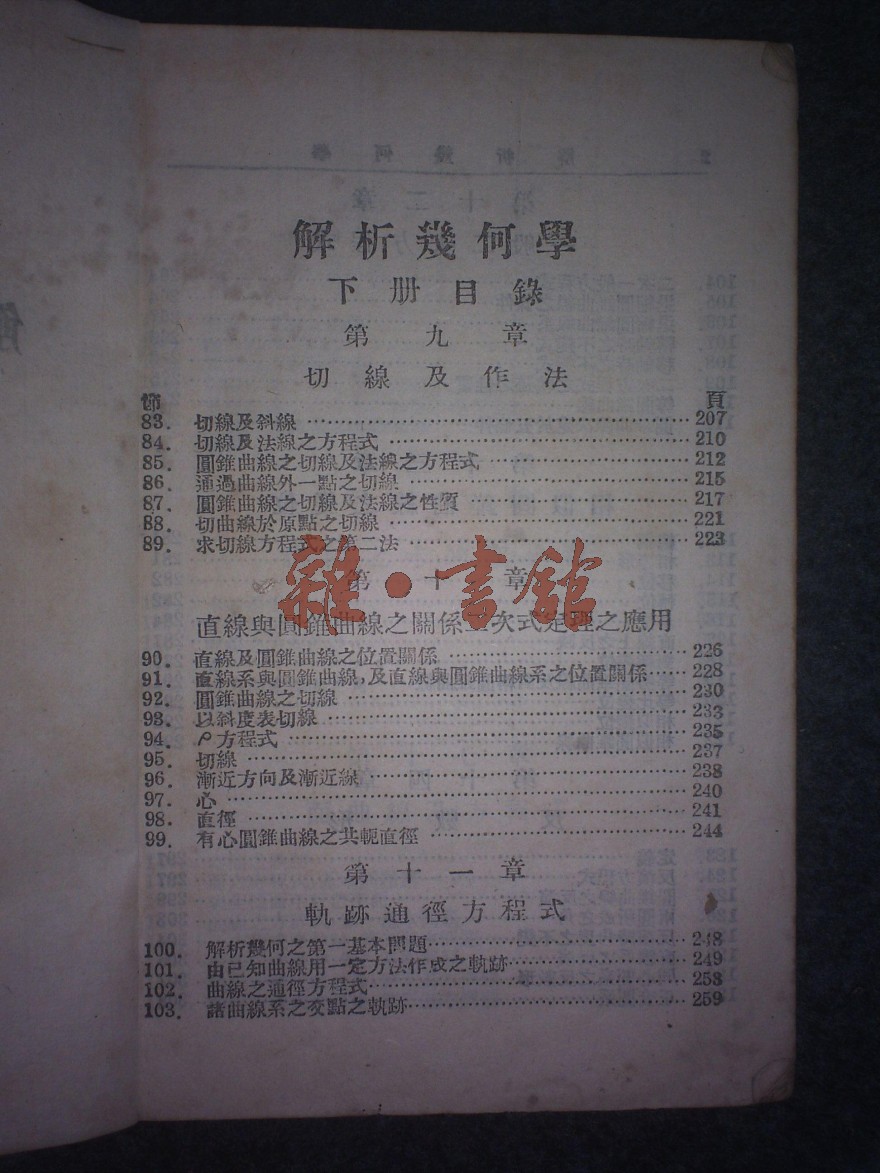 解析幾何學
下册目錄
第九章
切線及作法
節 頁
83. 切線及斜線 207
84. 切線及法線之方程式 210
85. 圓錐曲線之切線及法線之方程式 212
86. 通過曲線外一點之切線 215
87. 圓錐曲線之切線及法線之性質 217
88. 切曲線於原點之切線 221
89. 求切線方程式之第二法 223
雜·書館
第十章
直線與圓錐曲線之關係二次式定理之應用
90. 直線及圓錐曲線之位置關係 226
91. 直線系與圓錐曲線,及直線與圓錐曲線系之位置關係 228
92. 圓錐曲線之切線 230
93. 以斜度表切線 233
94. ρ方程式 235
95. 切線 237
96. 漸近方向及漸近線 238
97. 心 240
98. 直徑 241
99. 有心圓錐曲線之共軛直徑 244
第十一章
軌跡通徑方程式
100. 解析幾何之第一基本問題 248
101. 由已知曲線用一定方法作成之軌跡 249
102. 曲線之通徑方程式 258
103. 諸曲線系之交點之軌跡 259